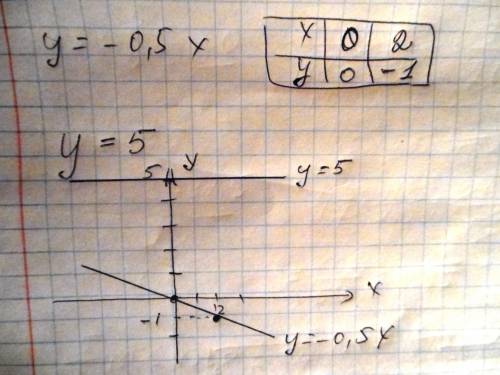 y = - 0,5 x
x 0 2
y 0 -1
y = 5
5 y
y = 5
x
-1 2
y = -0,5x